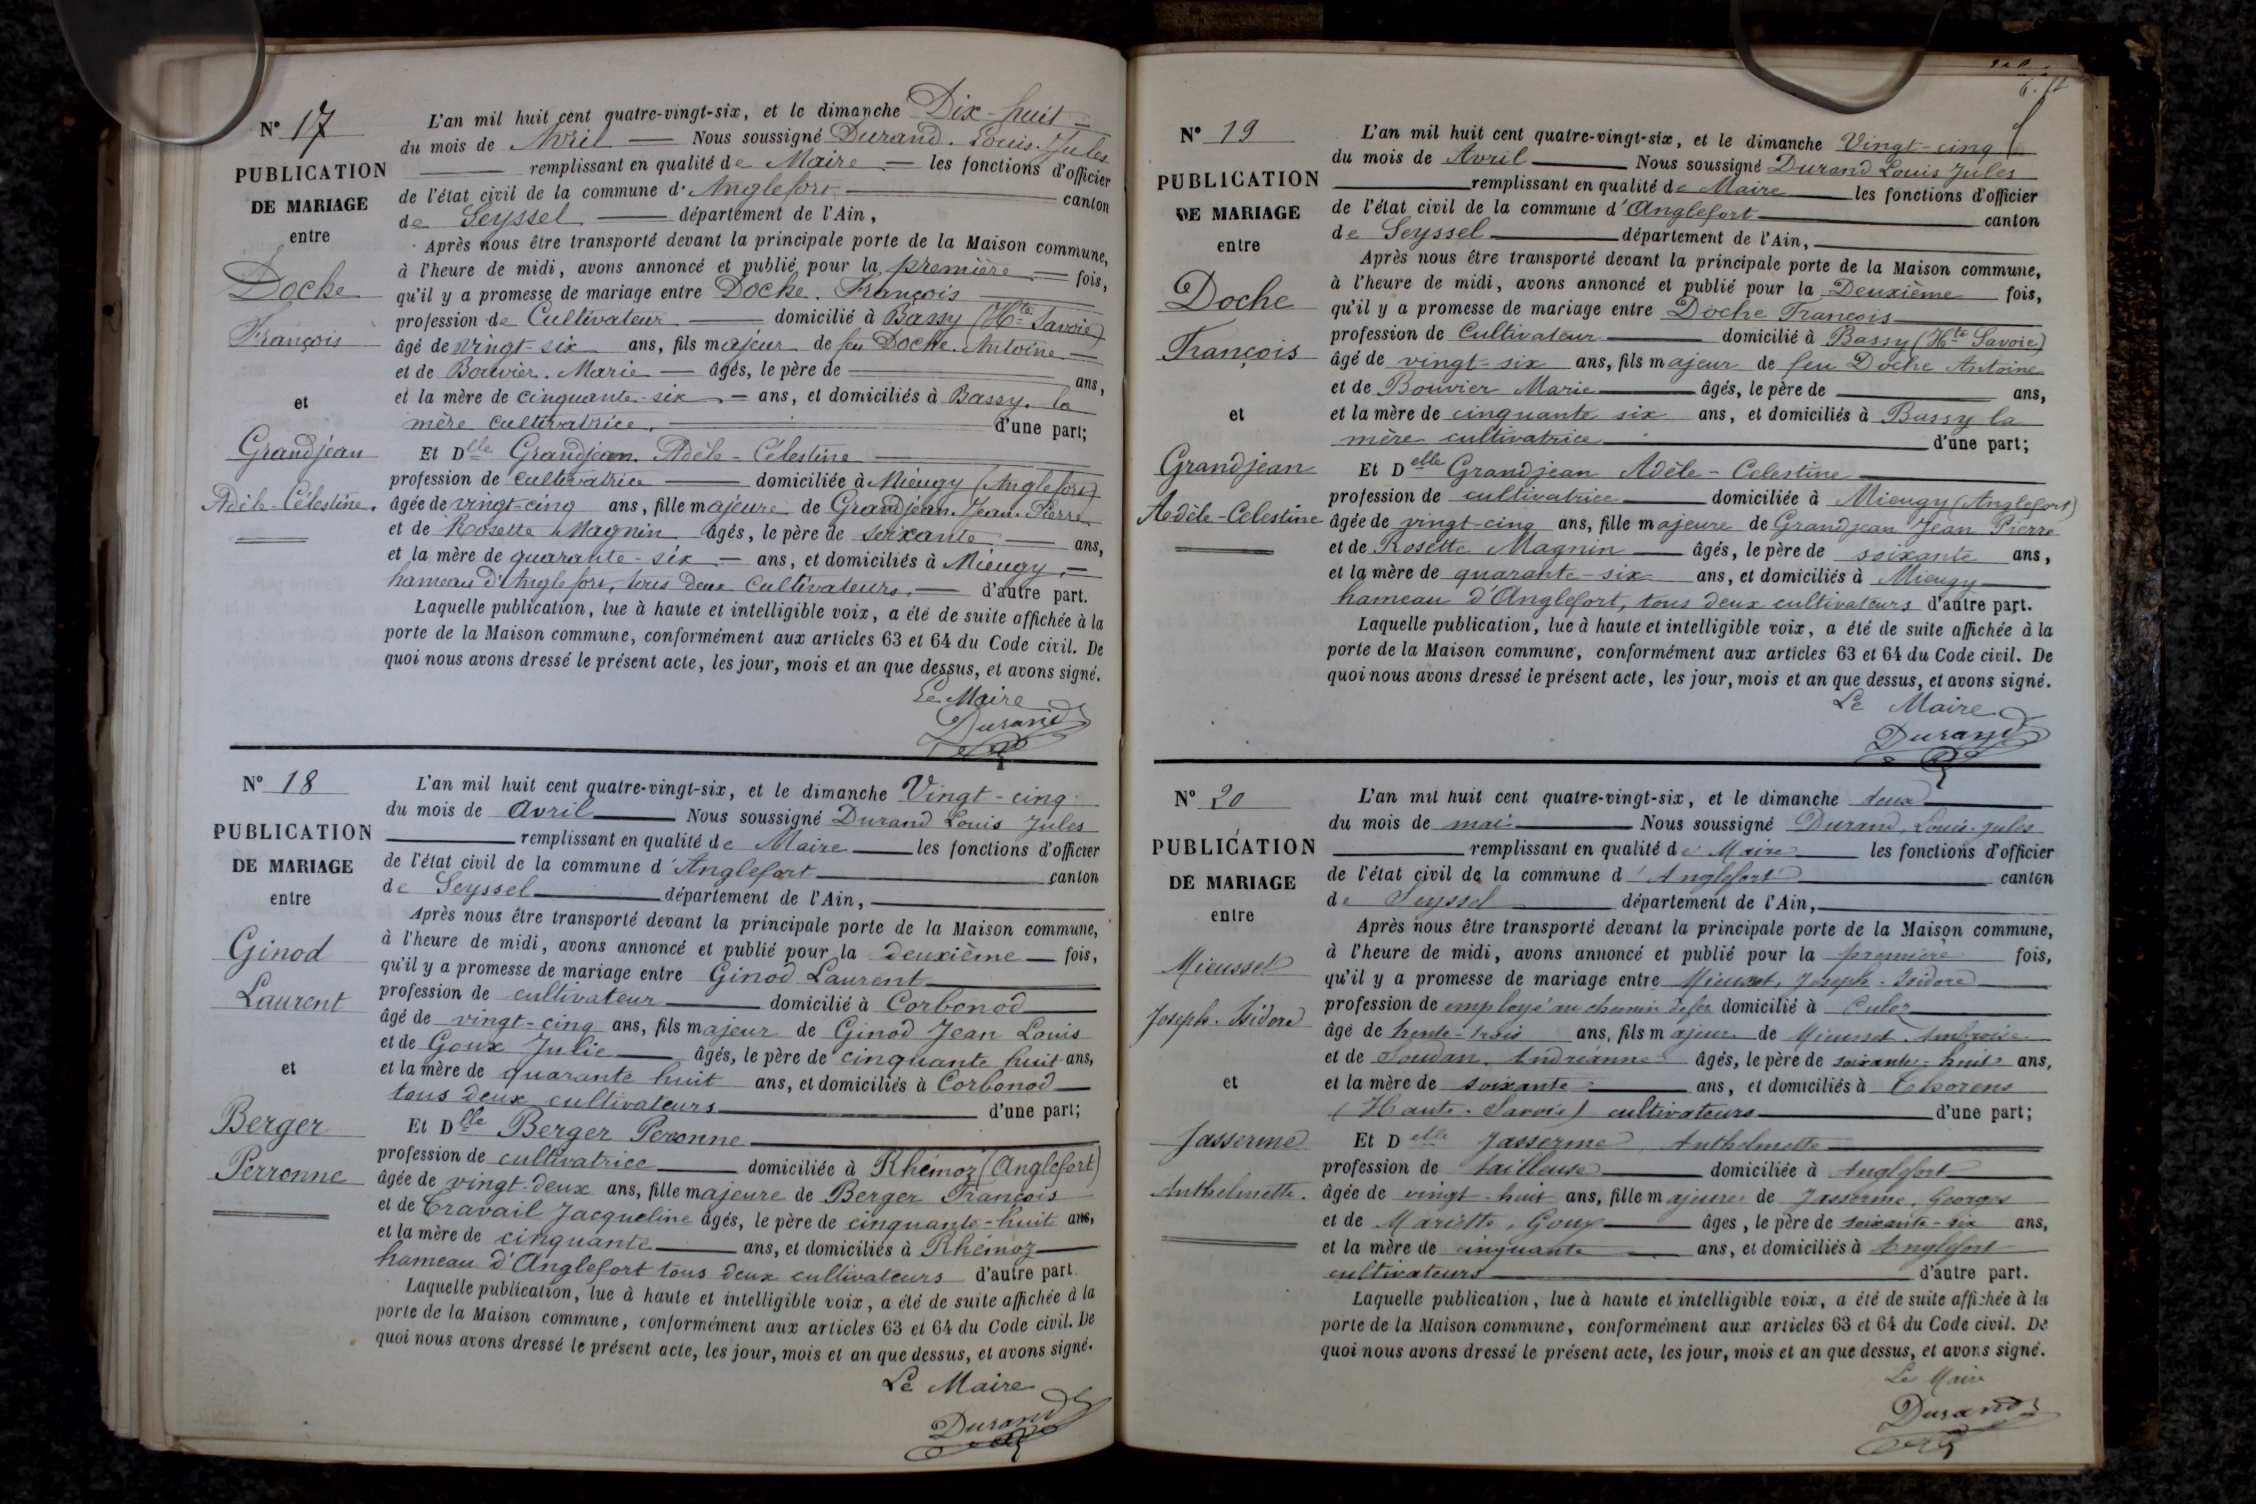 N° 17
PUBLICATION
DE MARIAGE
entre
Doche
François
et
Grandjean
Adèle-Célestine.
L'an mil huit cent quatre-vingt-six, et le dimanche Dix-huit
du mois de Avril Nous soussigné Durand. Louis. Jules
remplissant en qualité de Maire les fonctions d'officier
de l'état civil de la commune d'Anglefort canton
de Seyssel département de l'Ain,
Après nous être transporté devant la principale porte de la Maison commune,
à l'heure de midi, avons annoncé et publié pour la première fois,
qu'il y a promesse de mariage entre Doche. François
profession de Cultivateur domicilié à Bassy (Hte Savoie)
âgé de vingt-six ans, fils majeur de feu Doche. Antoine
et de Bouvier. Marie âgés, le père de ans,
et la mère de cinquante-six ans, et domiciliés à Bassy. la
mère cultivatrice. d'une part;
Et Dlle Grandjean. Adèle-Célestine
profession de cultivatrice domiciliée à Mieugy (Anglefort)
âgée de vingt-cinq ans, fille majeure de Grandjean. Jean. Pierre
et de Rosette Magnin âgés, le père de soixante ans,
et la mère de quarante-six ans, et domiciliés à Mieugy,
hameau d'Anglefort, tous deux cultivateurs. d'autre part.
Laquelle publication, lue à haute et intelligible voix, a été de suite affichée à la
porte de la Maison commune, conformément aux articles 63 et 64 du Code civil. De
quoi nous avons dressé le présent acte, les jour, mois et an que dessus, et avons signé.
Le Maire
Durand
N° 18
PUBLICATION
DE MARIAGE
entre
Ginod
Laurent
et
Berger
Perronne
L'an mil huit cent quatre-vingt-six, et le dimanche Vingt-cinq
du mois de avril Nous soussigné Durand Louis Jules
remplissant en qualité de Maire les fonctions d'officier
de l'état civil de la commune d'Anglefort canton
de Seyssel département de l'Ain,
Après nous être transporté devant la principale porte de la Maison commune,
à l'heure de midi, avons annoncé et publié pour la deuxième fois,
qu'il y a promesse de mariage entre Ginod Laurent
profession de cultivateur domicilié à Corbonod
âgé de vingt-cinq ans, fils majeur de Ginod Jean Louis
et de Goux Julie âgés, le père de cinquante huit ans,
et la mère de quarante huit ans, et domiciliés à Corbonod
tous deux cultivateurs d'une part;
Et Dlle Berger Peronne
profession de cultivatrice domiciliée à Rhémoz (Anglefort)
âgée de vingt-deux ans, fille majeure de Berger François
et de Travail Jacqueline âgés, le père de cinquante-huit ans,
et la mère de cinquante ans, et domiciliés à Rhémoz
hameau d'Anglefort tous deux cultivateurs d'autre part.
Laquelle publication, lue à haute et intelligible voix, a été de suite affichée à la
porte de la Maison commune, conformément aux articles 63 et 64 du Code civil. De
quoi nous avons dressé le présent acte, les jour, mois et an que dessus, et avons signé.
Le Maire
Durand
N° 19
PUBLICATION
DE MARIAGE
entre
Doche
François
et
Grandjean
Aedèle-Celestine
L'an mil huit cent quatre-vingt-six, et le dimanche Vingt-cinq
du mois de Avril Nous soussigné Durand Louis Jules
remplissant en qualité de Maire les fonctions d'officier
de l'état civil de la commune d'Anglefort canton
de Seyssel département de l'Ain,
Après nous être transporté devant la principale porte de la Maison commune,
à l'heure de midi, avons annoncé et publié pour la Deuxième fois,
qu'il y a promesse de mariage entre Doche François
profession de Cultivateur domicilié à Bassy (Hte Savoie)
âgé de vingt-six ans, fils majeur de feu Doche Antoine
et de Bouvier Marie âgés, le père de ans,
et la mère de cinquante six ans, et domiciliés à Bassy la
mère cultivatrice d'une part;
Et Delle Grandjean Adèle-Celestine
profession de cultivatrice domiciliée à Mieugy (Anglefort)
âgée de vingt-cinq ans, fille majeure de Grandjean Jean Pierre
et de Rosette Magnin âgés, le père de soixante ans,
et la mère de quarante-six ans, et domiciliés à Mieugy
hameau d'Anglefort, tous deux cultivateurs d'autre part.
Laquelle publication, lue à haute et intelligible voix, a été de suite affichée à la
porte de la Maison commune, conformément aux articles 63 et 64 du Code civil. De
quoi nous avons dressé le présent acte, les jour, mois et an que dessus, et avons signé.
Le Maire
Durand
N° 20
PUBLICATION
DE MARIAGE
entre
Mieusset
Joseph. Isidore
et
Jasserme
Anthelmette.
L'an mil huit cent quatre-vingt-six, et le dimanche deux
du mois de mai Nous soussigné Durand, Louis-Jules
remplissant en qualité de Maire les fonctions d'officier
de l'état civil de la commune d'Anglefort canton
de Seyssel département de l'Ain,
Après nous être transporté devant la principale porte de la Maison commune,
à l'heure de midi, avons annoncé et publié pour la première fois,
qu'il y a promesse de mariage entre Mieusset, Joseph. Isidore
profession de employé au chemin de fer domicilié à Culoz
âgé de trente-trois ans, fils majeur de Mieusset. Ambroise
et de Soudan. Andréanne âgés, le père de soixante-huit ans,
et la mère de soixante ans, et domiciliés à Thorens
(Haute-Savoie) cultivateurs d'une part;
Et Delle Jasserme, Anthelmette
profession de tailleuse domiciliée à Anglefort
âgée de vingt-huit ans, fille majeure de Jasserme, Georges
et de Mariette, Goux âgés, le père de soixante-six ans,
et la mère de cinquante ans, et domiciliés à Anglefort
cultivateurs d'autre part.
Laquelle publication, lue à haute et intelligible voix, a été de suite affichée à la
porte de la Maison commune, conformément aux articles 63 et 64 du Code civil. De
quoi nous avons dressé le présent acte, les jour, mois et an que dessus, et avons signé.
Le Maire
Durand